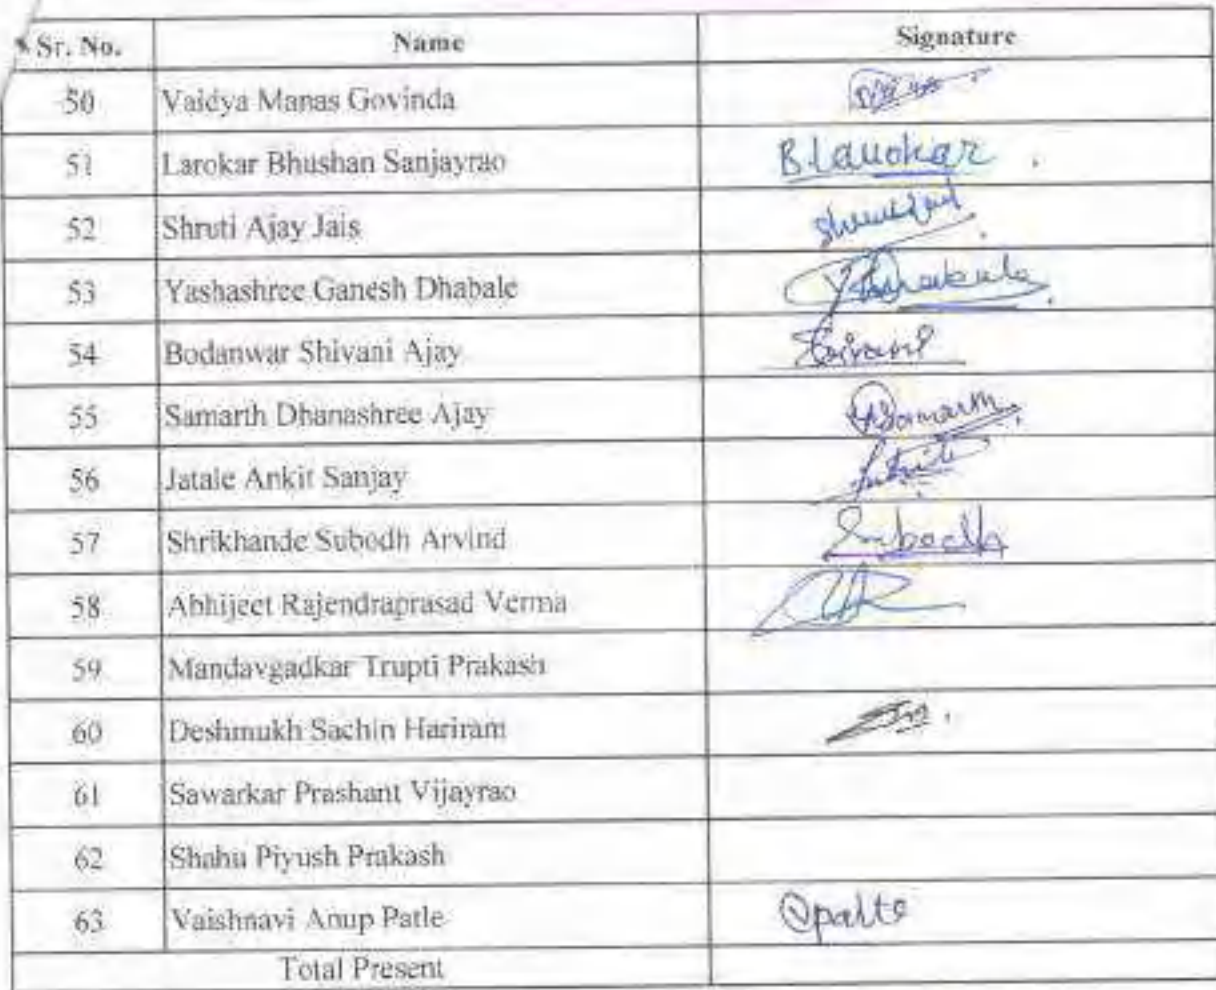 Sr. No. Name Signature
50 Vaidya Manas Govinda
51 Larokar Bhushan Sanjayrao Blauokar
52 Shruti Ajay Jais
53 Yashashree Ganesh Dhabale
54 Bodanwar Shivani Ajay Shivani
55 Samarth Dhanashree Ajay Samarth
56 Jatale Ankit Sanjay
57 Shrikhande Subodh Arvind Subodh
58 Abhijeet Rajendraprasad Verma
59 Mandavgadkar Trupti Prakash
60 Deshmukh Sachin Hariram
61 Sawarkar Prashant Vijayrao
62 Shahu Piyush Prakash
63 Vaishnavi Anup Patle
Total Present